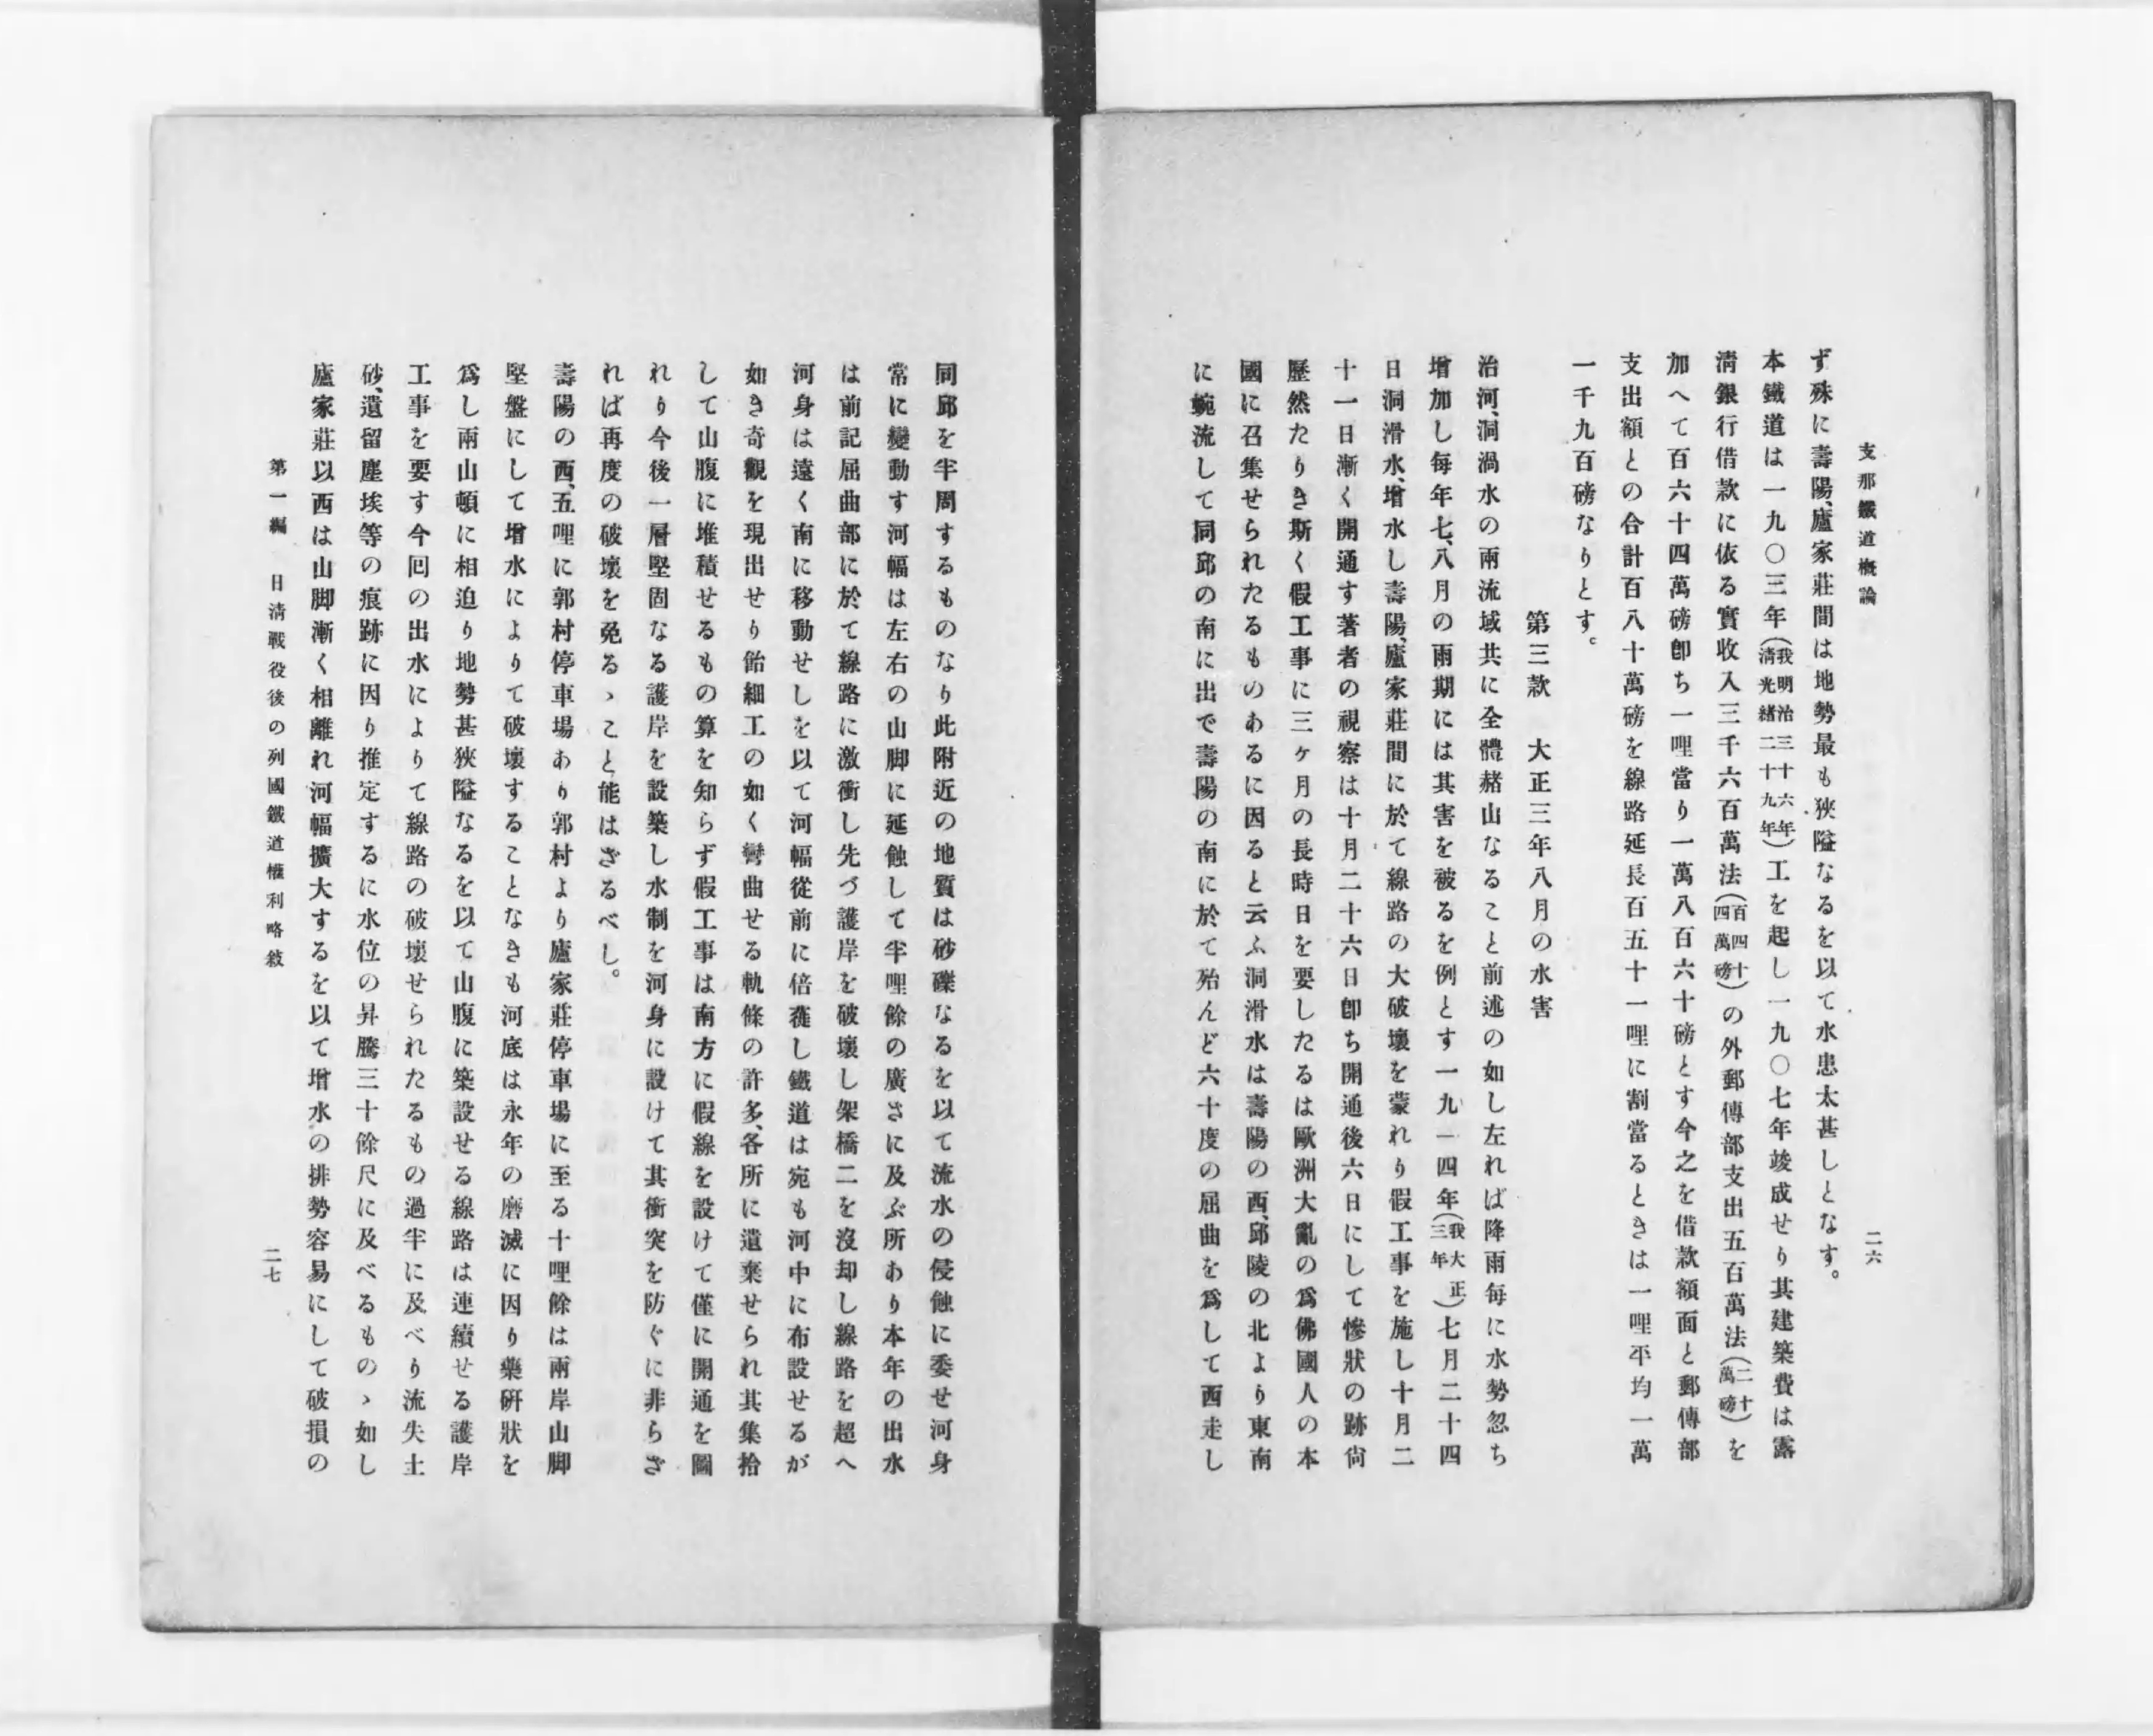 支那鐵道概論
二六
ず殊に壽陽、廬家莊間は地勢最も狹隘なるを以て水患太甚しとなす。
本鐵道は一九〇三年(我明治三十六年清光緒二十九年)工を起し一九〇七年竣成せり其建築費は露
淸銀行借款に依る實收入三千六百萬法(百四十四萬磅)の外郵傳部支出五百萬法(二十萬磅)を
加へて百六十四萬磅卽ち一哩當り一萬八百六十磅とす今之を借款額面と郵傳部
支出額との合計百八十萬磅を線路延長百五十一哩に割當るときは一哩平均一萬
一千九百磅なりとす。
第三款 大正三年八月の水害
治河、洞渦水の兩流域共に全體赭山なること前述の如し左れば降雨每に水勢忽ち
增加し每年七、八月の雨期には其害を被るを例とす一九一四年(我大正三年)七月二十四
日洞滑水、增水し壽陽、廬家莊間に於て線路の大破壞を蒙れり假工事を施し十月二
十一日漸く開通す著者の視察は十月二十六日卽ち開通後六日にして慘狀の跡尙
歷然たりき斯く假工事に三ヶ月の長時日を要したるは歐洲大亂の爲佛國人の本
國に召集せられたるものあるに因ると云ふ洞滑水は壽陽の西、邱陵の北より東南
に蜿流して同邱の南に出で壽陽の南に於て殆んど六十度の屈曲を爲して西走し
同邱を半周するものなり此附近の地質は砂礫なるを以て流水の侵蝕に委せ河身
常に變動す河幅は左右の山脚に延蝕して半哩餘の廣さに及ぶ所あり本年の出水
は前記屈曲部に於て線路に激衝し先づ護岸を破壞し架橋二を沒却し線路を超へ
河身は遠く南に移動せしを以て河幅從前に倍蓰し鐵道は宛も河中に布設せるが
如き奇觀を現出せり飴細工の如く彎曲せる軌條の許多、各所に遺棄せられ其集拾
して山腹に堆積せるもの算を知らず假工事は南方に假線を設けて僅に開通を圖
れり今後一層堅固なる護岸を設築し水制を河身に設けて其衝突を防ぐに非らざ
れば再度の破壞を免るゝこと能はざるべし。
壽陽の西、五哩に郭村停車場あり郭村より廬家莊停車場に至る十哩餘は兩岸山脚
堅盤にして增水によりて破壞することなきも河底は永年の磨滅に因り藥硏狀を
爲し兩山頓に相迫り地勢甚狹隘なるを以て山腹に築設せる線路は連續せる護岸
工事を要す今回の出水によりて線路の破壞せられたるもの過半に及べり流失土
砂、遺留塵埃等の痕跡に因り推定するに水位の昇騰三十餘尺に及べるものゝ如し
廬家莊以西は山脚漸く相離れ河幅擴大するを以て增水の排勢容易にして破損の
第一編 日淸戰役後の列國鐵道權利略敍
二七